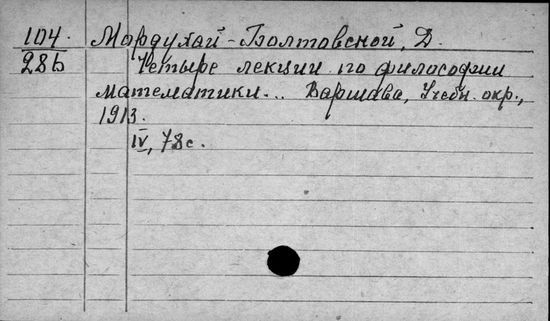 104. Мордухай-Болтовской, Д.
286 Четыре лекции по философии
математики... Варшава, Учебн. окр.,
1913.
IV, 78с.